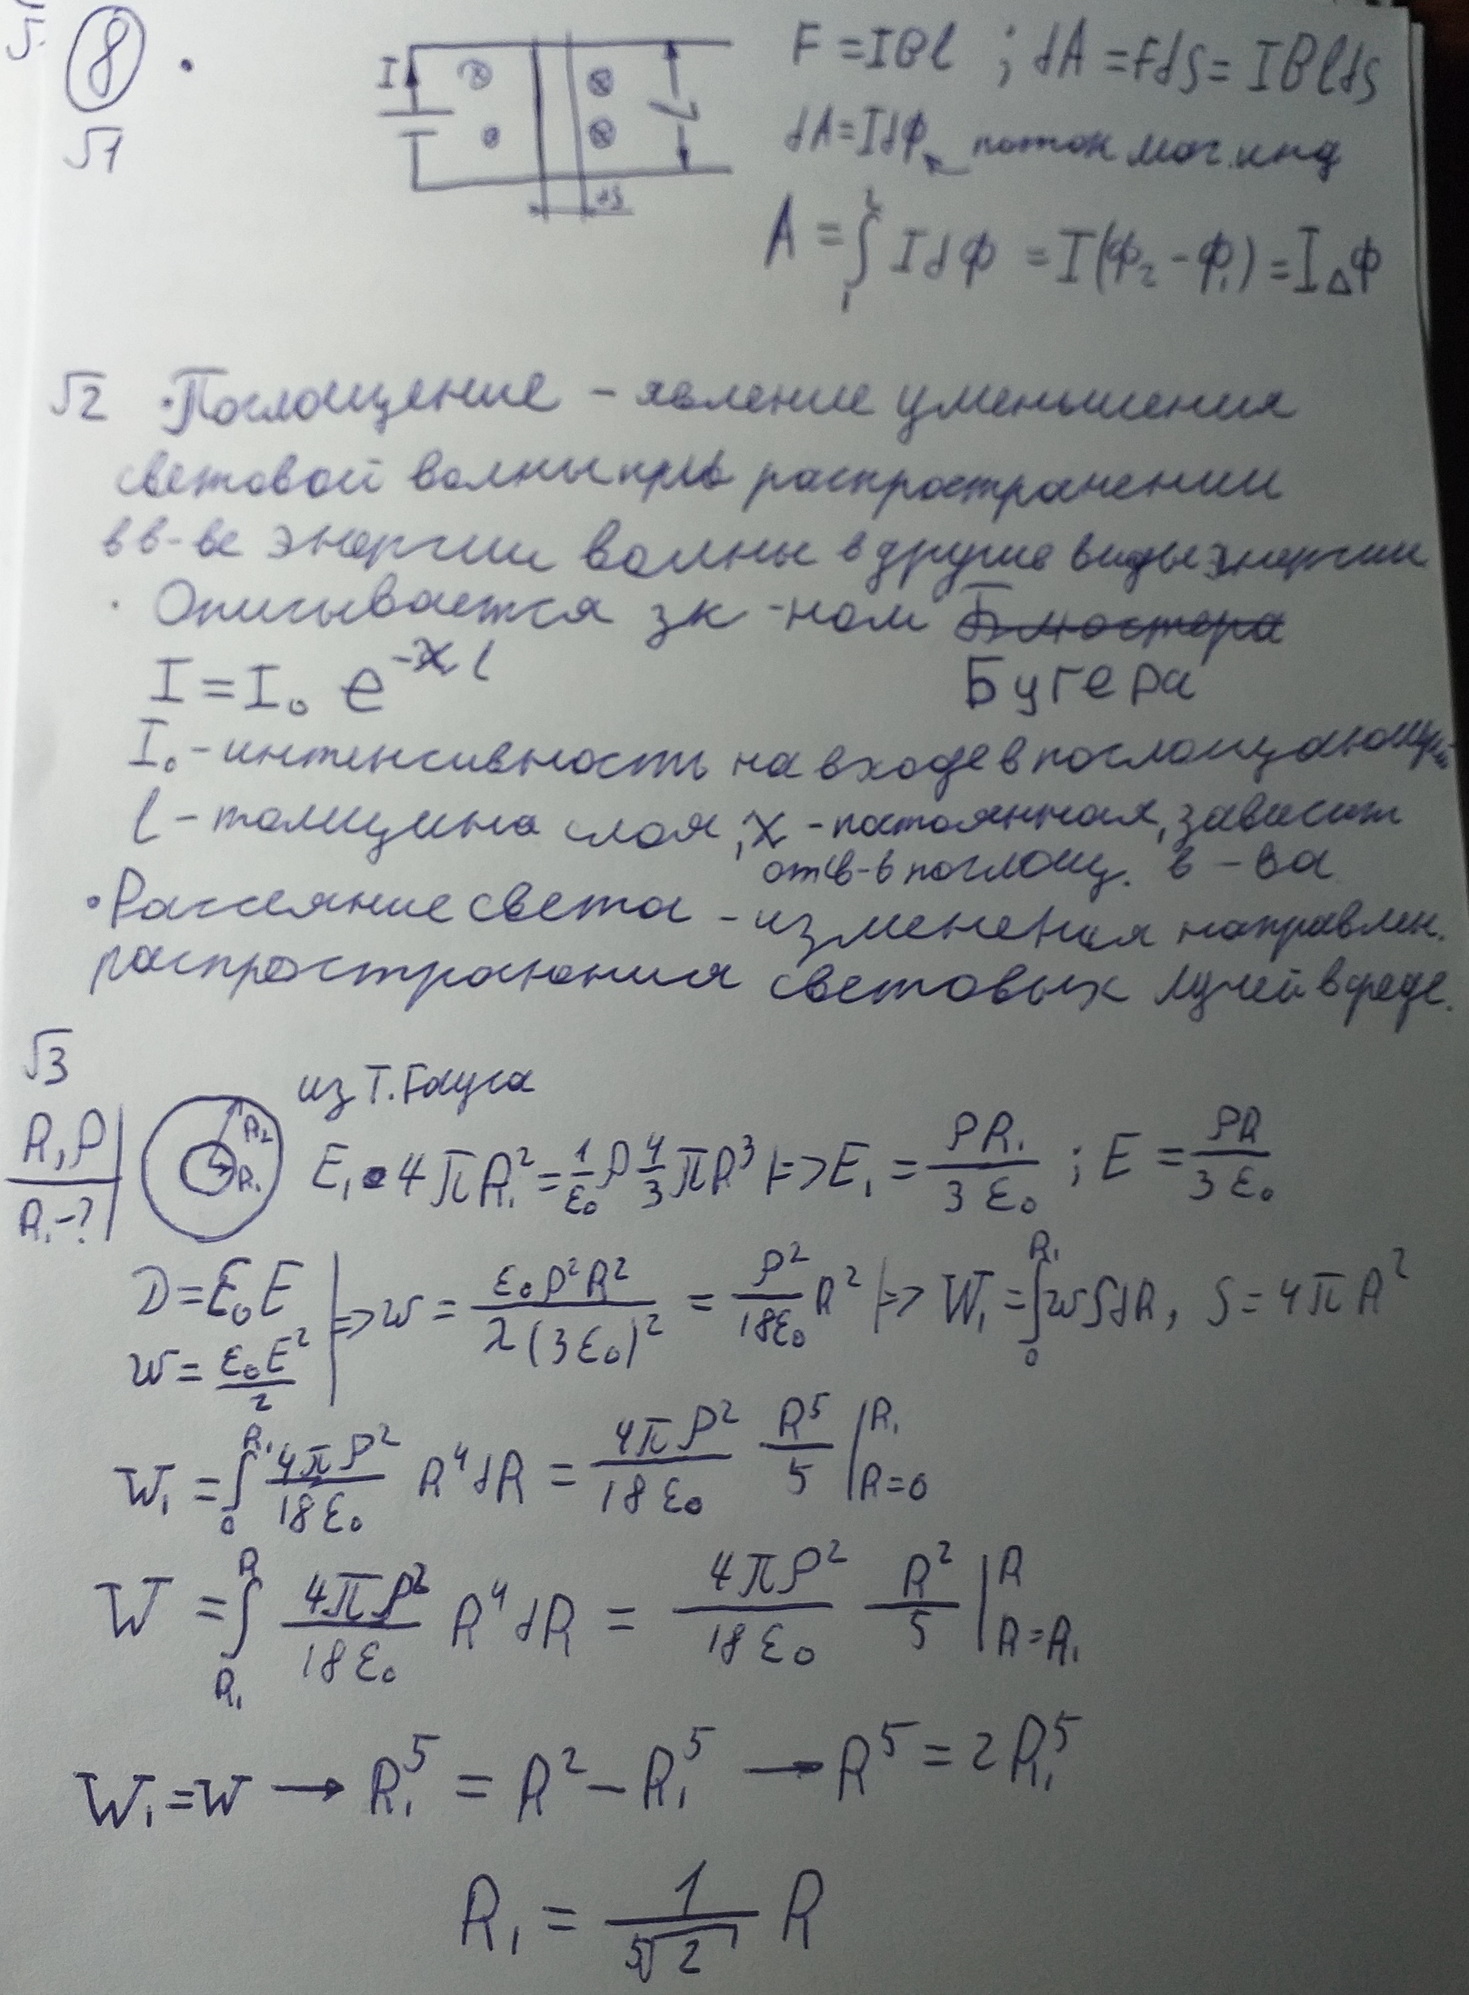 8
√1
I
F = IBl ; dA = FdS = IBldS
dA = IdФ ← поток маг. инд
dS
A = ∫₁² IdФ = I(Ф₂ - Ф₁) = IΔФ
√2 · Поглощение - явление уменьшения
световой волны при распространении
в в-ве энергии волны в другие виды энергии
· Описывается зк-ном
I = I₀ e^(-χl) Бугера
I₀ - интенсивность на входе в поглощающий
l - толщина слоя, χ - постоянная, зависит
от св-в поглощ. в-ва
· Рассеяние света - изменения направлен.
распространения световых лучей в среде.
√3
R, ρ
R₁ - ?
R₂
R₁
из Т. Гауса
E₁ · 4πR₁² = 1/ε₀ ρ 4/3 πR³ |=> E₁ = ρR₁/3ε₀ ; E = ρR/3ε₀
D = ε₀E
w = ε₀E²/2
|=> w = ε₀ρ²R²/2(3ε₀)² = ρ²/18ε₀ R² |=> W₁ = ∫₀^R₁ wSdR, S = 4πR²
W₁ = ∫₀^R₁ 4πρ²/18ε₀ R⁴dR = 4πρ²/18ε₀ R⁵/5 |_(R=0)^(R₁)
W = ∫_R₁^R 4πρ²/18ε₀ R⁴dR = 4πρ²/18ε₀ R²/5 |_(R=R₁)^(R)
W₁ = W → R₁⁵ = R² - R₁⁵ → R⁵ = 2R₁⁵
R₁ = 1/⁵√2 R